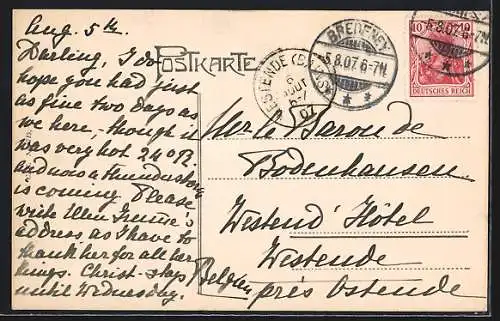 Aug. 5th.
POSTKARTE
Darling, I do
hope you had just
as fine two days as
we here, though it
was very hot 24° R.
and now a
is coming. Please
write Irene's
address as I have to
thank her for all her
things. Christ stays
until Wednesday.
BREDENEY
5.8.07. 6-7N.
WESTENDE
6
AOUT
07
5.8.07. 6-7N.
10 10
DEUTSCHES REICH
Baron de
Bodenhausen
Westend' Hôtel
Westende
près Ostende
Belgien